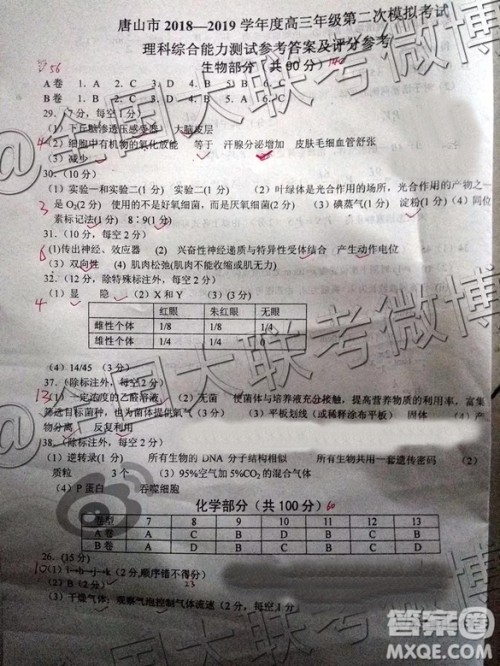 唐山市 2018—2019 学年度高三年级第二次模拟考试
理科综合能力测试参考答案及评分参考
生物部分（共 90 分）
56
A 卷 1. A 2. C 3. D 4. C 5. B 6. C
B 卷
29.（7 分，每空1分）
（1）下丘脑渗透压感受器 大脑皮层
4（2）细胞中有机物的氧化放能 等于 汗腺分泌增加 皮肤毛细血管舒张
（3）减少
30.（10 分）
（1）实验一和实验二(1 分) (1 分) （2）叶绿体是光合作用的场所，光合作用的产物之一
3 是 O₂(2 分) 使用的不是好氧细菌，而是厌氧细菌(2 分) （3）碘蒸气(1 分) 淀粉(1 分)（4）同位
素标记法(1 分) 8∶9(1 分)
31.（10 分，每空 2 分）
(1)传出神经、效应器 （2）兴奋性神经递质与特异性受体结合 产生动作电位
（3）双向性 （4）肌肉松弛(肌肉不能收缩或肌无力)
32.（12 分，除特殊标注外，每空 2 分）
4（1）显 隐 （2）X 和 Y （3）(3 分)
红眼 朱红眼 无眼
雄性个体 1/8 1/8 1/4
雌性个体 1/4 1/4 0
（4）14/45 （3 分）
37.（除标注外，每空 2 分）
13（1）一定浓度的乙醛溶液 （2）无菌 使菌体与培养液充分接触，提高营养物质的利用率，富集
筛选目标菌种，也为菌体提供氧气(3 分) （3）平板划线（或稀释涂布平板） 固体 （4）产
物分离 反复利用
38.（除标注外，每空 2 分）
（1）逆转录(1 分) 所有生物的 DNA 分子结构相似 所有生物共用一套遗传密码 （2）
质粒 3 个 （3）95%空气加 5%CO₂的混合气体
（4）P 蛋白 吞噬细胞
化学部分（共 100 分）60
卷型 7 8 9 10 11 12 13
A 卷 A C D
B 卷 A D B C
26.（15 分）
10（2 分,顺序错不得分）
（2）B（2 分） 23
（3）干燥气体，观察气泡控制气体流速（2 分，每空 1 分）
@中国大联考微博
@中国大联考微博
答案圈
MXQE.COM